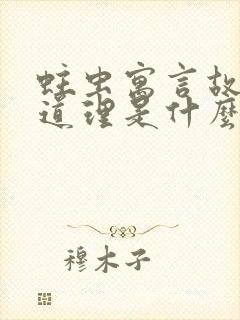 蛀虫寓言故
道理是什麼
穆木子